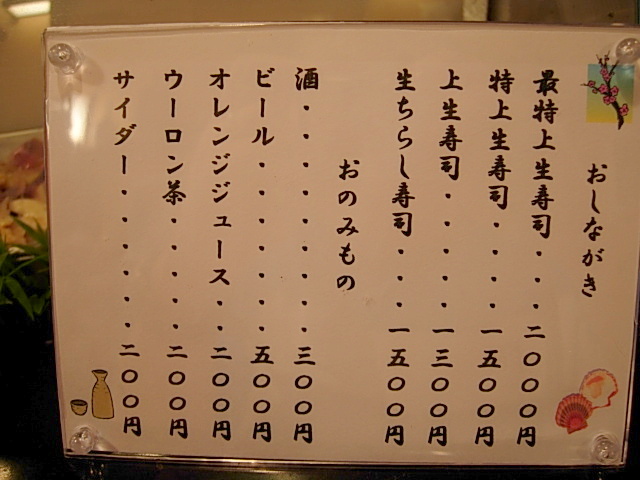 おしながき
最特上生寿司・・・二〇〇〇円
特上生寿司・・・・一五〇〇円
上生寿司・・・・・一三〇〇円
生ちらし寿司・・・一五〇〇円
おのみもの
酒・・・・・・・・・三〇〇円
ビール・・・・・・・五〇〇円
オレンジジュース・・二〇〇円
ウーロン茶・・・・・二〇〇円
サイダー・・・・・・二〇〇円